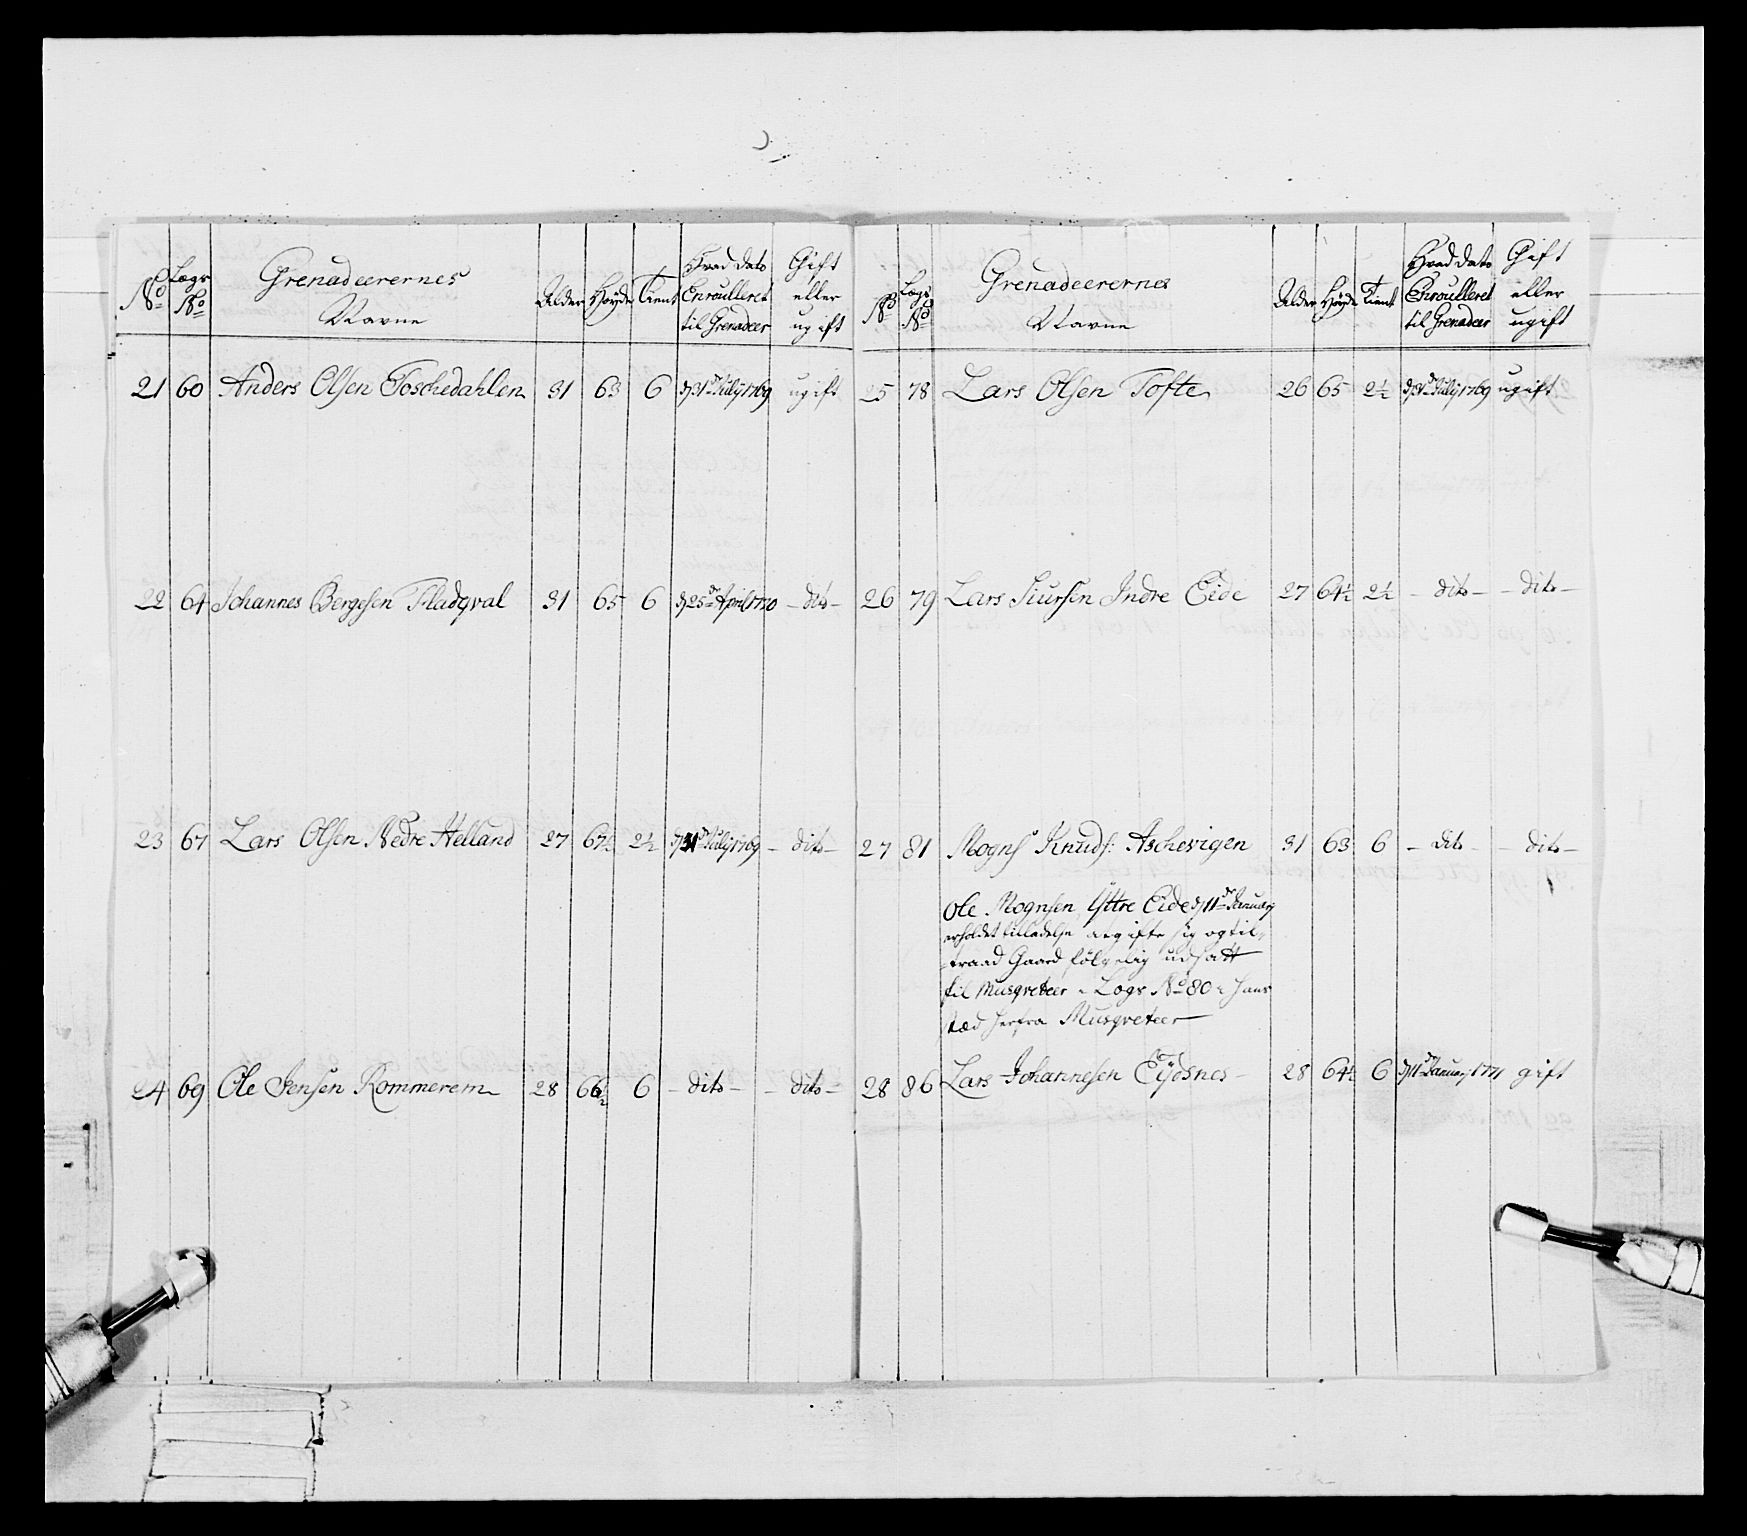 No Lægs No Grenadeerernes Navne Alder Høyde Tient Hvad dato Enroulleret til Grenadeer Gift eller ugift
21 60 Anders Olsen Toschedahlen 31 63 6 d 31de July 1769 ugift
22 64 Johannes Bergesen Fladqval 31 65 6 d 25de April 1770 – dito –
23 67 Lars Olsen Nedre Helland 27 67½ 2½ d 31de July 1769 – dito –
24 69 Ole Jensen Rommerem 28 66½ 6 – dito – – dito –
No Lægs No Grenadeerernes Navne Alder Høyde Tient Hvad dato Enroulleret til Grenadeer Gift eller ugift
25 78 Lars Olsen Tofte 26 65 2½ d 31de July 1769 ugift
26 79 Lars Siursen Indre Eide 27 64½ 2½ – dito – – dito –
27 81 Mogns Knuds: Aschevigen 31 63 6 – dito – – dito –
Ole Mognsen Yttre Eide d 11de January
erholdet tilladelse at gifte sig og til-
traad Gaard følgelig udsatt
til Musqveteer Legs No 80 hans
stæd herfra Musqveteer
28 86 Lars Johannesen Eydsnes 28 64½ 6 d 11de January 1771 gift